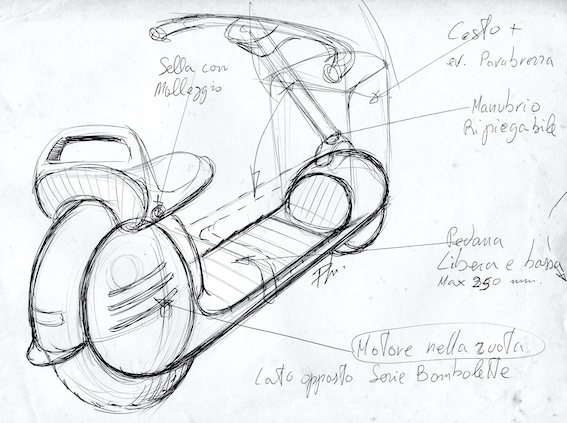 Cesto +
ev. Parabrezza
Sella con
Molleggio
Manubrio
Ripiegabile
Pedana
Libera e bassa
Max 250 mm.
Motore nella ruota
Lato opposto Serie Bombolette